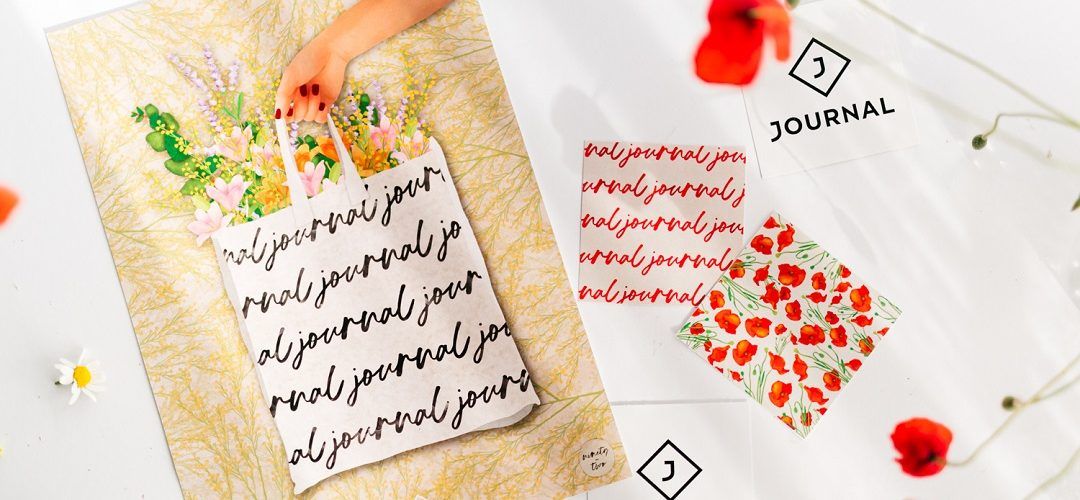 nal journal jour
rnal journal jo
al journal jour
rnal journal jou
al journal journ
ninety
two
nal journal jou
urnal journal j
nal journal jou
urnal journal
nal journal
J
JOURNAL
J